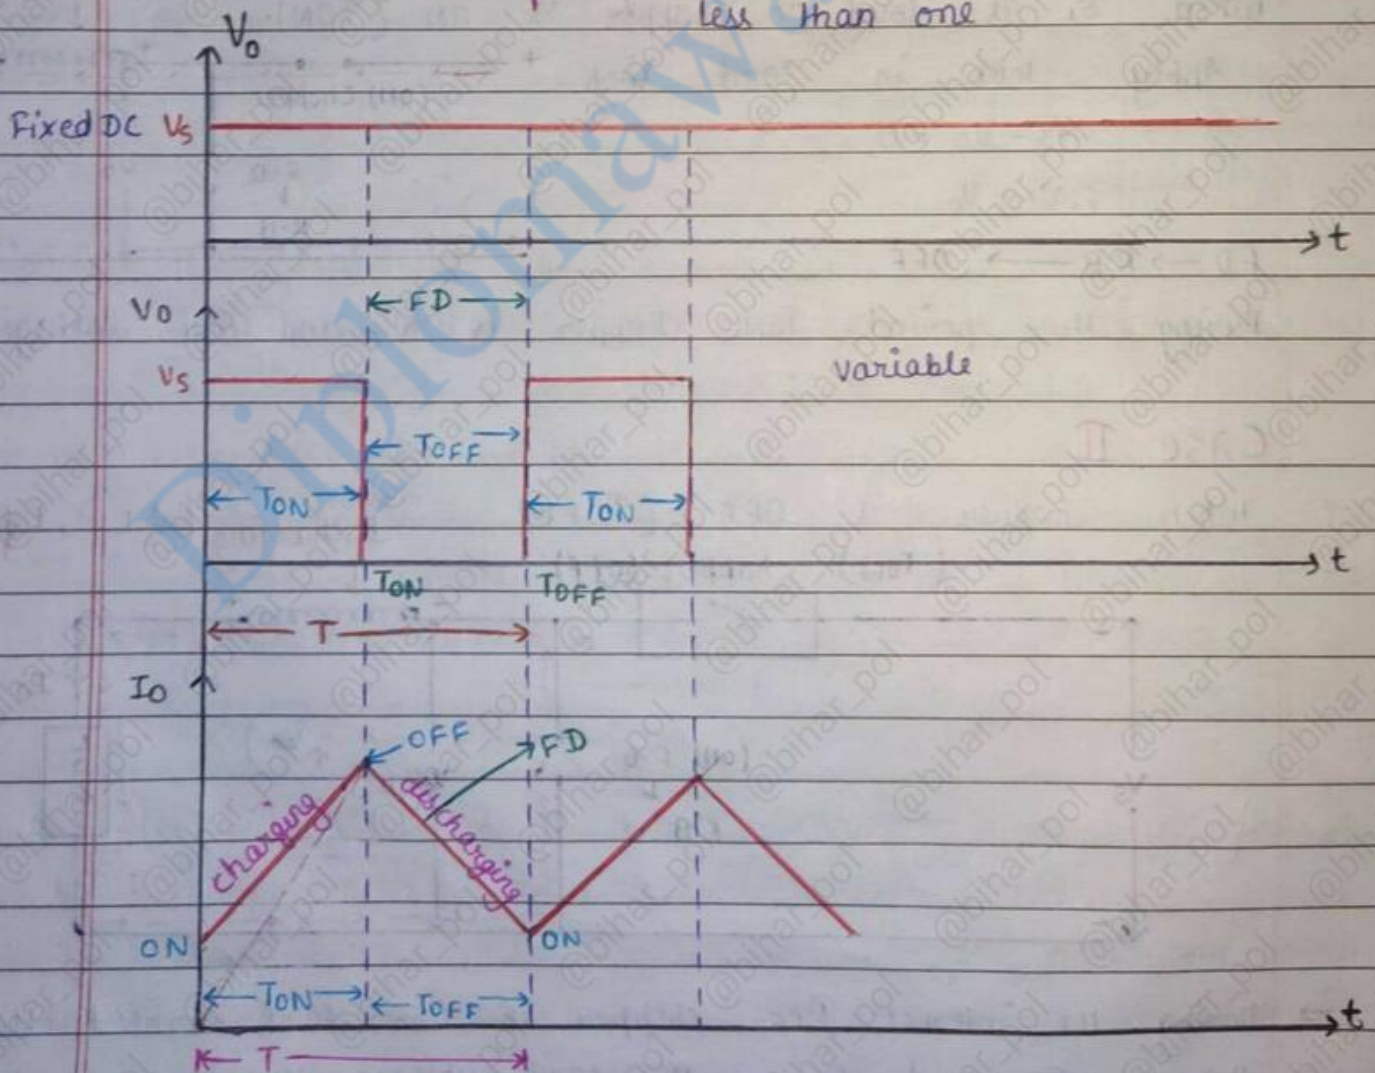 less than one
V₀
Fixed DC Vs
t
V₀
FD
Vs
variable
TOFF
TON
TON
t
TON
TOFF
T
I₀
OFF
FD
charging
discharging
ON
ON
TON
TOFF
t
T
Diplomaw
@bihar_pol